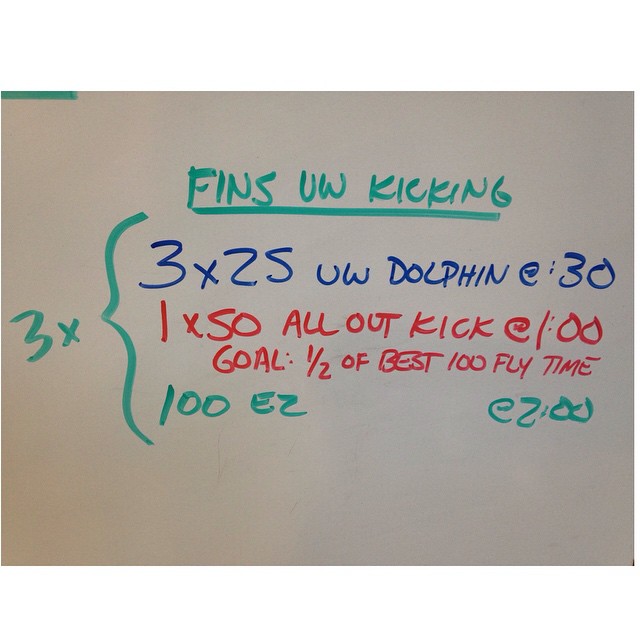 FINS UW KICKING
3x25 UW DOLPHIN @ :30
1x50 ALL OUT KICK @ 1:00
GOAL: 1/2 OF BEST 100 FLY TIME
3x
100 EZ @ 2:00